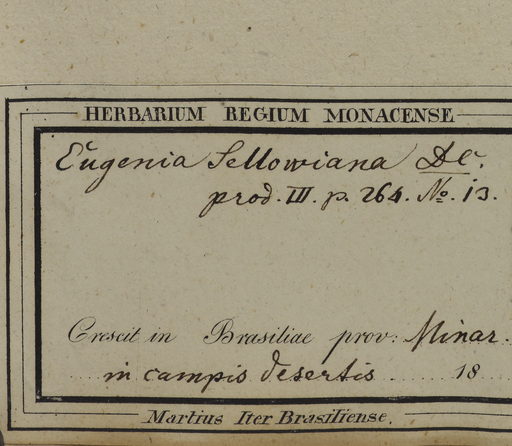 HERBARIUM REGIUM MONACENSE
Eugenia Sellowiana DC.
prod. III. p. 264. No. 13.
Crescit in Brasiliae prov: Minar.
in campis desertis ...... 18
Martius Iter Brasiliense.